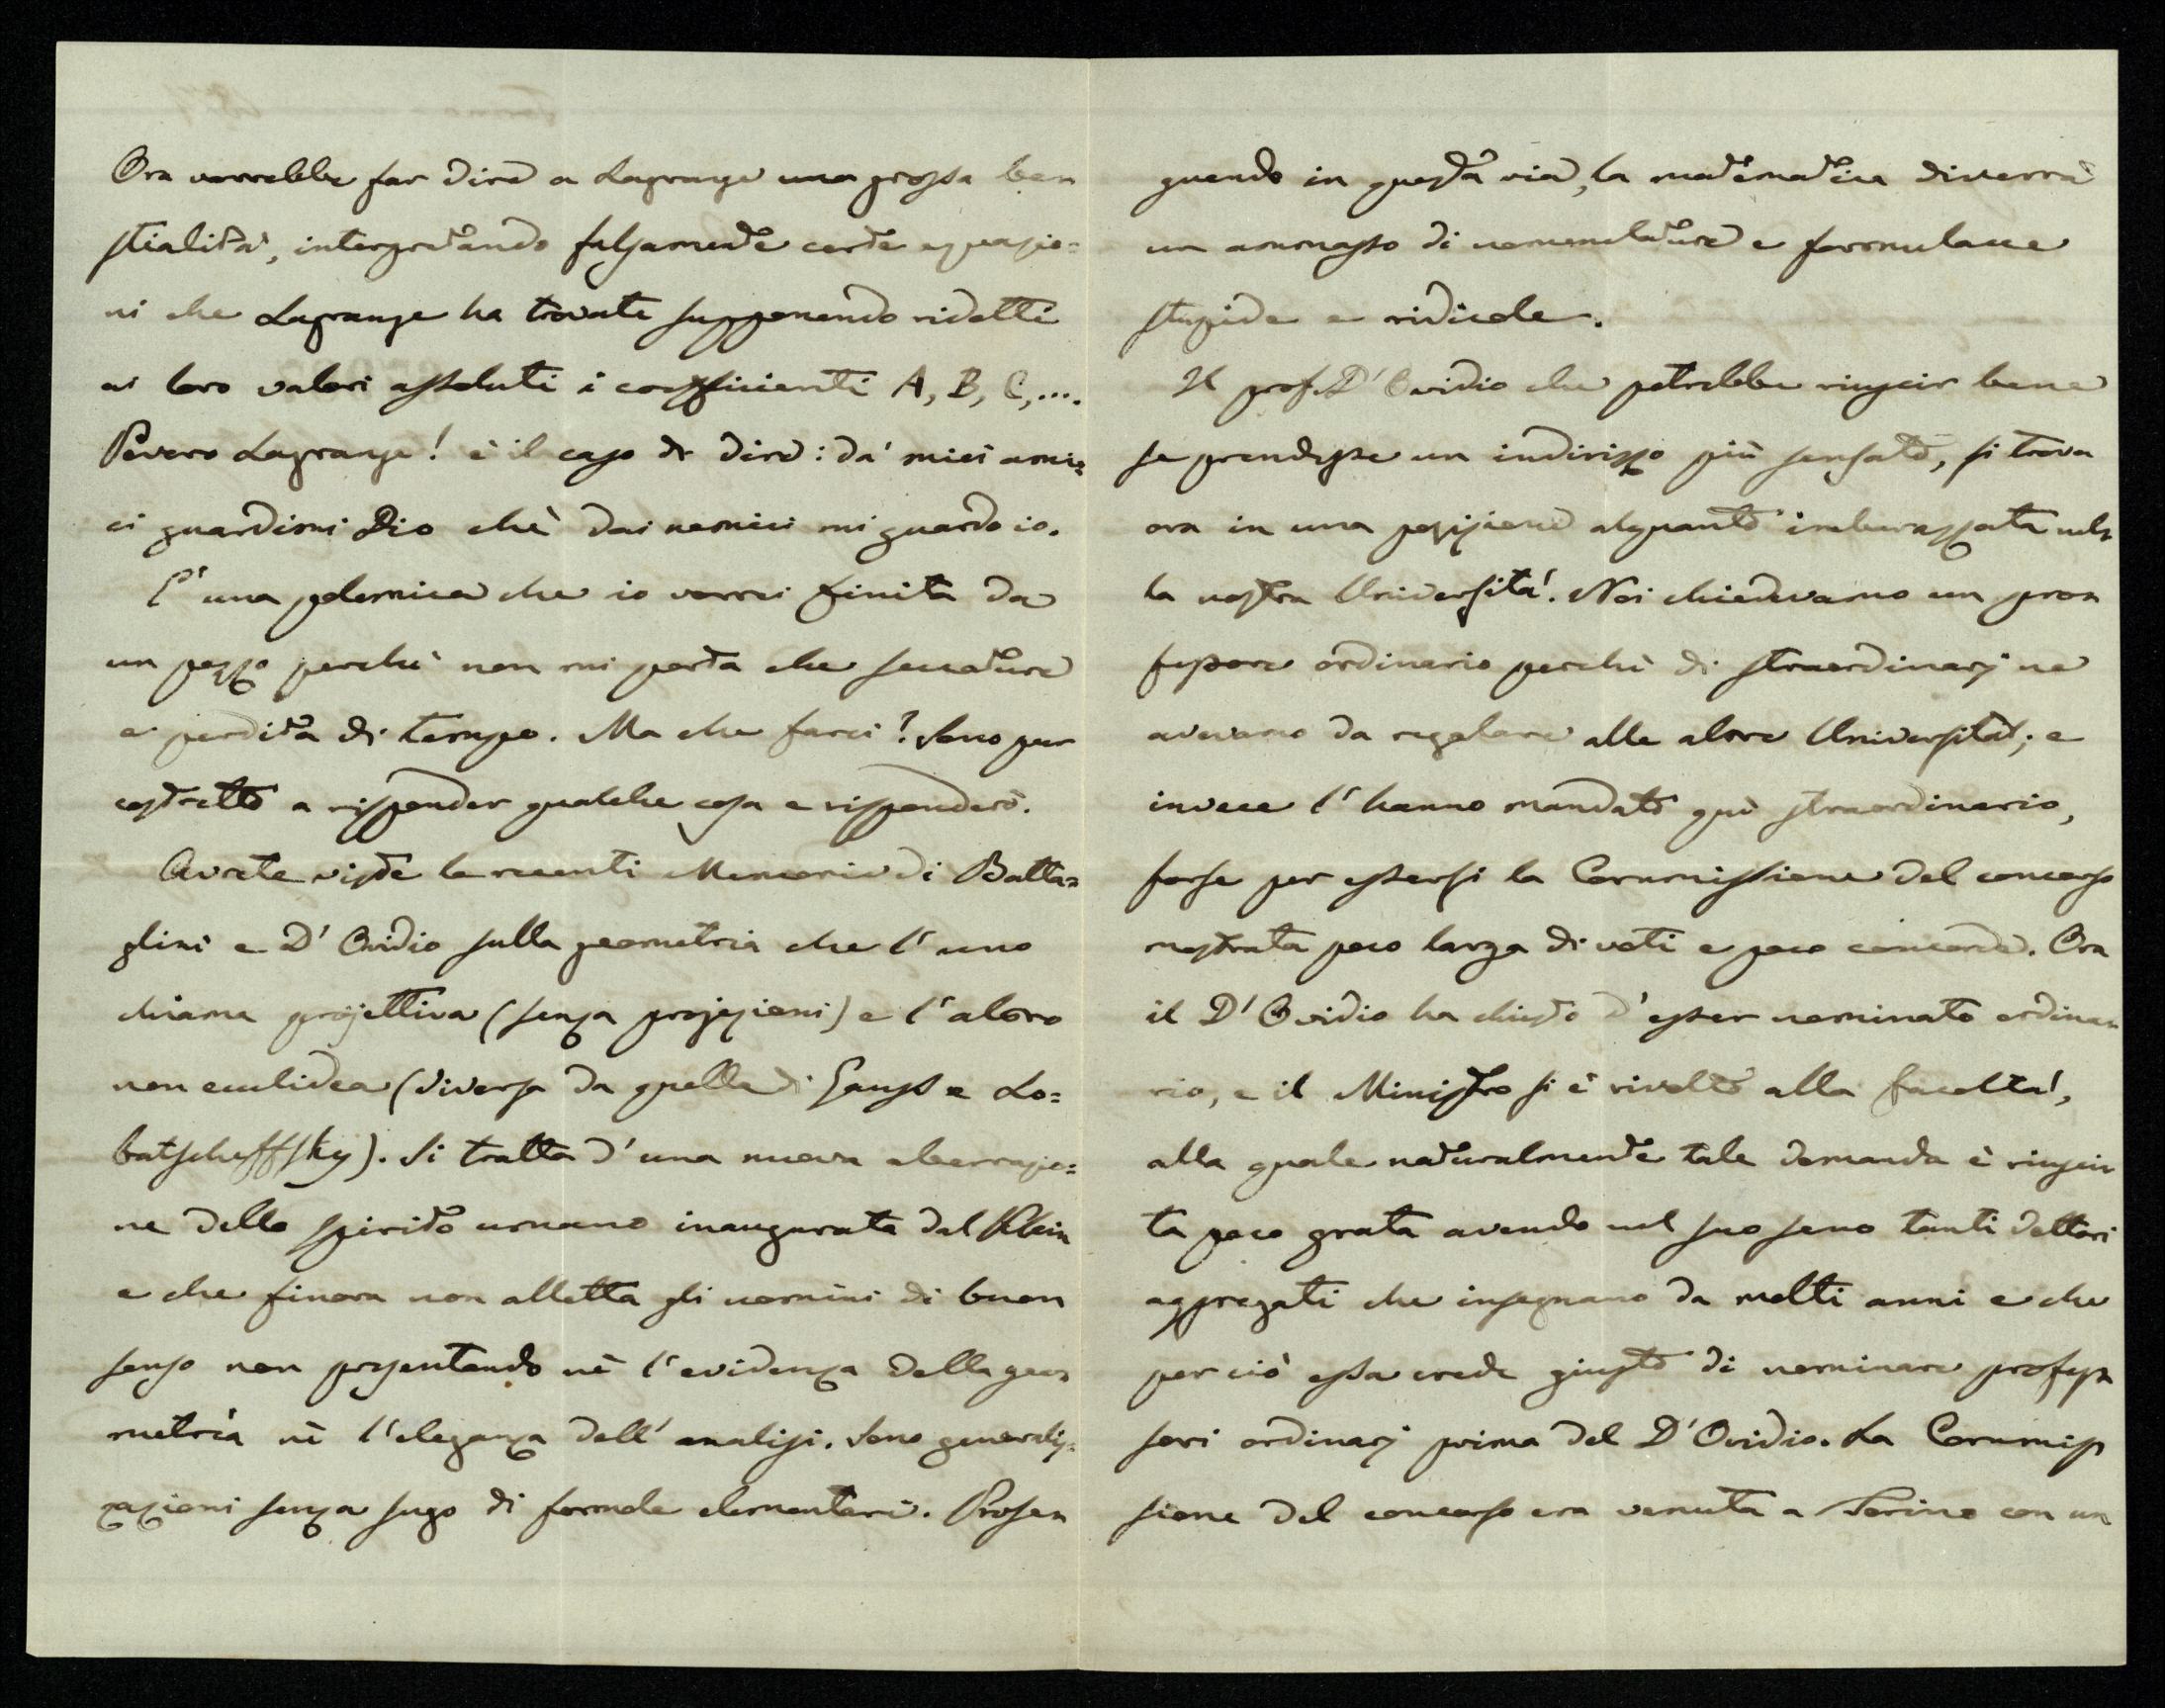 Ora vorrebbe far dire a Lagrange una grossa be=
stialità, interpretando falsamente certe equazio=
ni che Lagrange ha trovate supponendo ridotti
ai loro valori assoluti i coefficienti A, B, C,....
Povero Lagrange! è il caso di dire: da' miei ami=
ci guardimi Dio chè dai nemici mi guardo io.
E' una polemica che io vorrei finita da
un pezzo perchè non mi porta che seccature
e perdita di tempo. Ma che farci? Sono pur
costretto a risponder qualche cosa e risponderò.
Avrete viste le recenti Memorie di Batta=
glini e D'Ovidio sulla geometria che l'uno
chiama projettiva (senza projezioni) e l'altro
non euclidea (diversa da quella di Gauss e Lo=
batscheffsky). Si tratta d'una nuova aberrazio=
ne dello spirito umano inaugurata dal Klein
e che finora non alletta gli uomini di buon
senso non presentando nè l'evidenza della geo=
metria nè l'eleganza dell'analisi. Sono generaliz=
zazioni senza sugo di formole elementari. Prose=
guendo in questa via, la matematica diverrà
un ammasso di nomenclature e formulacce
stupide e ridicole.
Il prof. D'Ovidio che potrebbe riuscir bene
se prendesse un indirizzo più sensato, si trova
ora in una posizione alquanto imbarazzata nel=
la nostra Università. Noi chiedevamo un pro=
fessore ordinario perchè di straordinarj ne
avevamo da regalare alle altre Università; e
invece l'hanno mandato quì straordinario,
forse per essersi la Commissione del concorso
mostrata poco larga di voti e poco concorde. Ora
il D'Ovidio ha chiesto d'esser nominato ordina=
rio, e il Ministro si è rivolto alla facoltà,
alla quale naturalmente tale domanda è riusci=
ta poco grata avendo nel suo seno tanti dottori
aggregati che insegnano da molti anni e che
perciò essa crede giusto di nominare profes=
sori ordinarj prima del D'Ovidio. La Commis=
sione del concorso era venuta a Torino con un